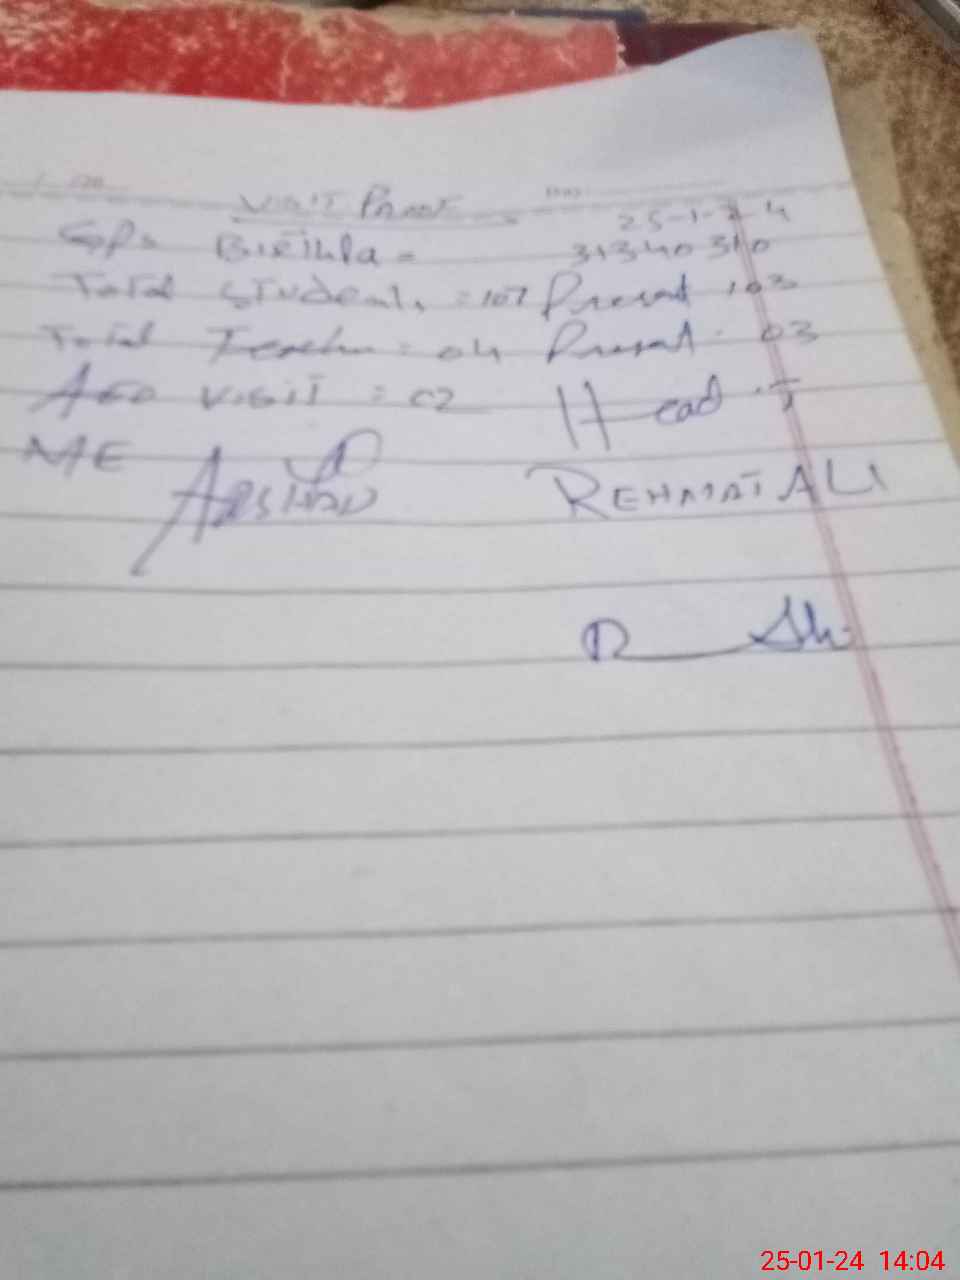 VISIT PROOF
25-1-24
GPS 31340310
Total Students = 107 Present 103
Total Teacher = 04 Present = 03
AEO visit = 02 Head T
MEE ARSHAD REHMAT ALI
25-01-24 14:04